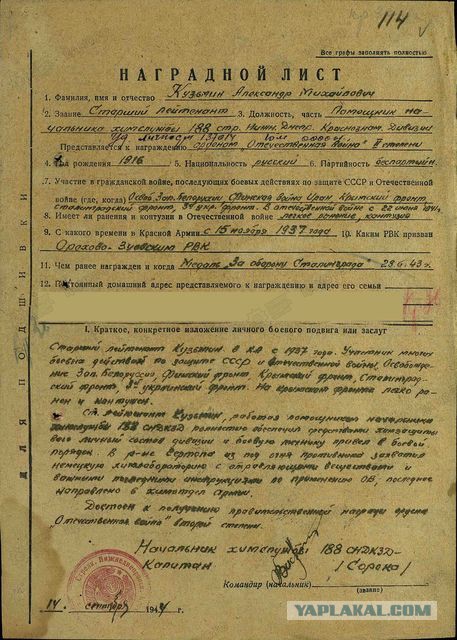 114
Все графы заполнять полностью
НАГРАДНОЙ ЛИСТ
1. Фамилия, имя и отчество Кузьмин Александр Михайлович
2. Звание Старший лейтенант 3. Должность, часть Помощник на-
чальника химслужбы 188 стр. Нижн. Днепр. Краснознам. Дивизии
Представляется к награждению орденом „Отечественная Война" II степени
4. Год рождения 1916 5. Национальность русский 6. Партийность беспартийн.
7. Участие в гражданской войне, последующих боевых действиях по защите СССР и Отечественной
войне (где, когда) Освоб. Зап. Белоруссии Финская война Крымский фронт
Сталинградский фронт, 3й укр. фронт. В отечественной войне с 22 июня 1941г.
8. Имеет ли ранения и контузии в Отечественной войне легкое ранение, контузия
9. С какого времени в Красной Армии с 15 ноября 1937 года 10. Каким РВК призван
Орехово-Зуевским РВК
11. Чем ранее награжден и когда Медаль „За оборону Сталинграда" 43 г.
12. Постоянный домашний адрес представляемого к награждению и адрес его семьи
I. Краткое, конкретное изложение личного боевого подвига или заслуг
Старший лейтенант Кузьмин в КА с 1937 года. Участник многих
боевых действий по защите СССР и отечественной войны. Освобожде-
ние Зап. Белоруссии, Финский фронт, Крымский фронт, Сталинград-
ский фронт, 3й украинский фронт. На крымском фронте легко ра-
нен и контужен.
Ст. лейтенант Кузьмин, работая помощником начальника
химслужбы 188 СНДКЗД полностью обеспечил средствами химзащиты
весь личный состав дивизии и боевую технику привел в боевой
порядок. В р-не Сертопа из под огня противника захватил
немецкую химлабораторию с отравляющими веществами и
важными последними инструкциями по применению ОВ, последние
направлено в химотдел армии.
Достоин к получению правительственной награды ордена
„Отечественная война" второй степени.
Начальник химслужбы 188 СНДКЗД
Капитан /Сорока/
Командир (начальник)
(звание)
14 сентября 1944 г.
ДЛЯ ПОДШИВКИ
YAPLAKAL.COM